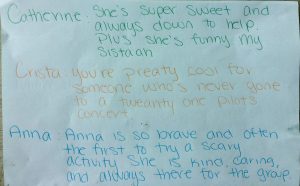 Catherine: She's super sweet and
always down to help.
Plus she's funny. my
Sistaah
Crista: you're preaty cool for
someone who's never gone
to a tweanty one pilots
concert
Anna: Anna is so brave and often
the first to try a scary
activity. She is kind, caring,
and always there for the group.